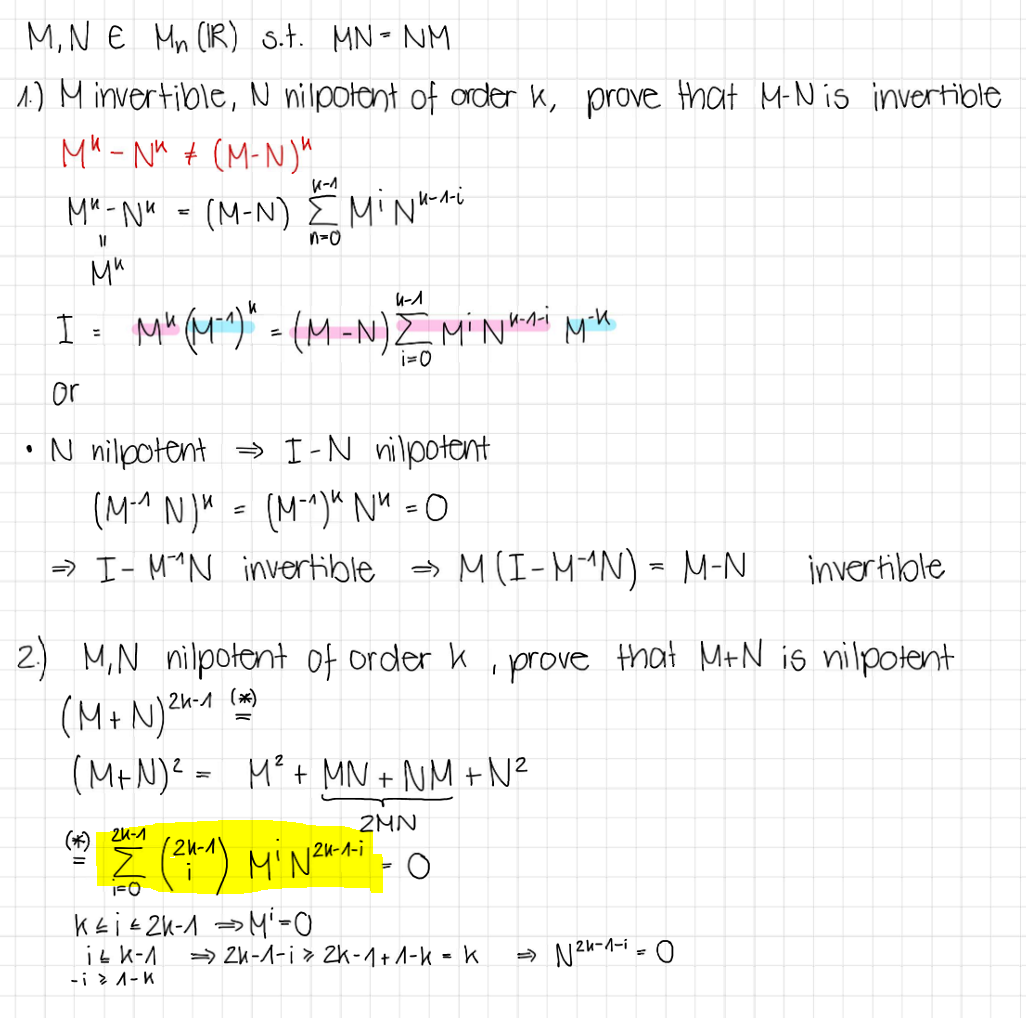 M, N ∈ Mn(ℝ) s.t. MN = NM
1.) M invertible, N nilpotent of order k, prove that M-N is invertible
M^k - N^k ≠ (M-N)^k
M^k - N^k = (M-N) ∑_{n=0}^{k-1} M^i N^{k-1-i}
=
M^k
I = M^k (M^{-1})^k = (M-N) ∑_{i=0}^{k-1} M^i N^{k-1-i} M^{-k}
or
• N nilpotent ⇒ I-N nilpotent
(M^{-1} N)^k = (M^{-1})^k N^k = 0
⇒ I - M^{-1}N invertible ⇒ M(I-M^{-1}N) = M-N invertible
2.) M,N nilpotent of order k, prove that M+N is nilpotent
(M+N)^{2k-1} (*)=
(M+N)^2 = M^2 + MN + NM + N^2
2MN
(*)= ∑_{i=0}^{2k-1} (2k-1 i) M^i N^{2k-1-i} = 0
k ≤ i ≤ 2k-1 ⇒ M^i = 0
i ≤ k-1 ⇒ 2k-1-i ≥ 2k-1+1-k = k ⇒ N^{2k-1-i} = 0
-i ≥ 1-k